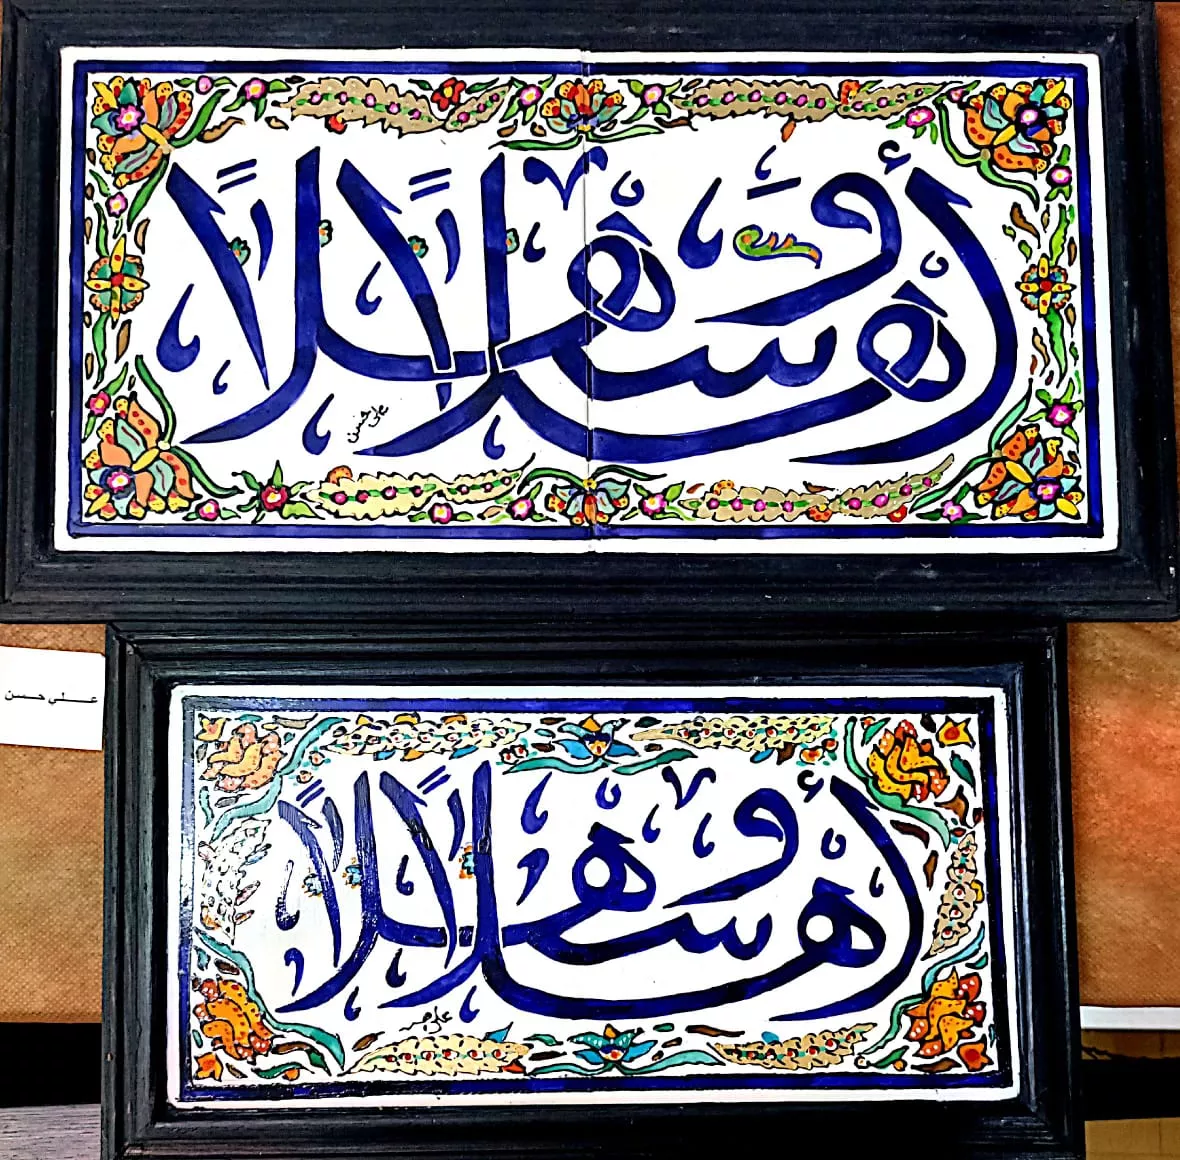 أهلا وسهلا
علي حسن
علي حسن
أهلا وسهلا
علي حسن